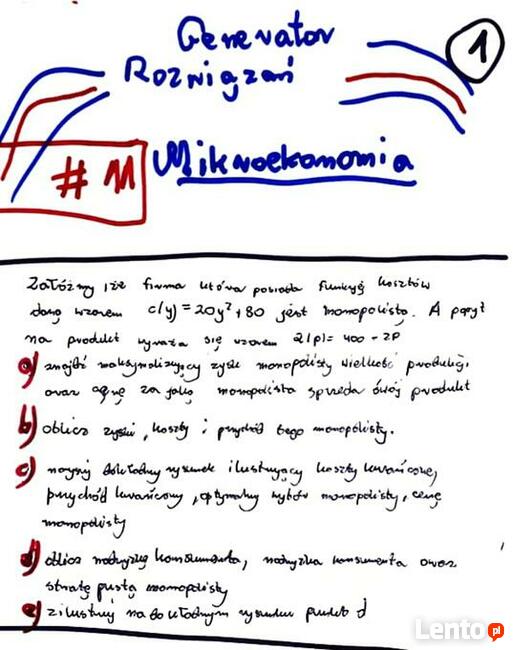 Generator
Rozwiązań
1
# M
Mikroekonomia
Załóżmy iże firma która posiada funkcję kosztów
daną wzorem c(y) = 20y² + 80 jest monopolistą. A popyt
na produkt wyraża się wzorem Q(p) = 400 - 2p
a) znajdź maksymalizującą zysk monopolisty wielkość produkcji,
oraz cenę za jaką monopolista sprzeda swój produkt
b) oblicz zyski, koszty i przychód tego monopolisty.
c) narysuj dokładny rysunek ilustrujący koszty krańcowe,
przychód krańcowy, optymalny wybór monopolisty, cenę
monopolisty
d) oblicz nadwyżkę konsumenta, nadwyżka konsumenta oraz
stratę pustą monopolisty
e) zilustruj na dokładnym rysunku punkt d
Lento.pl